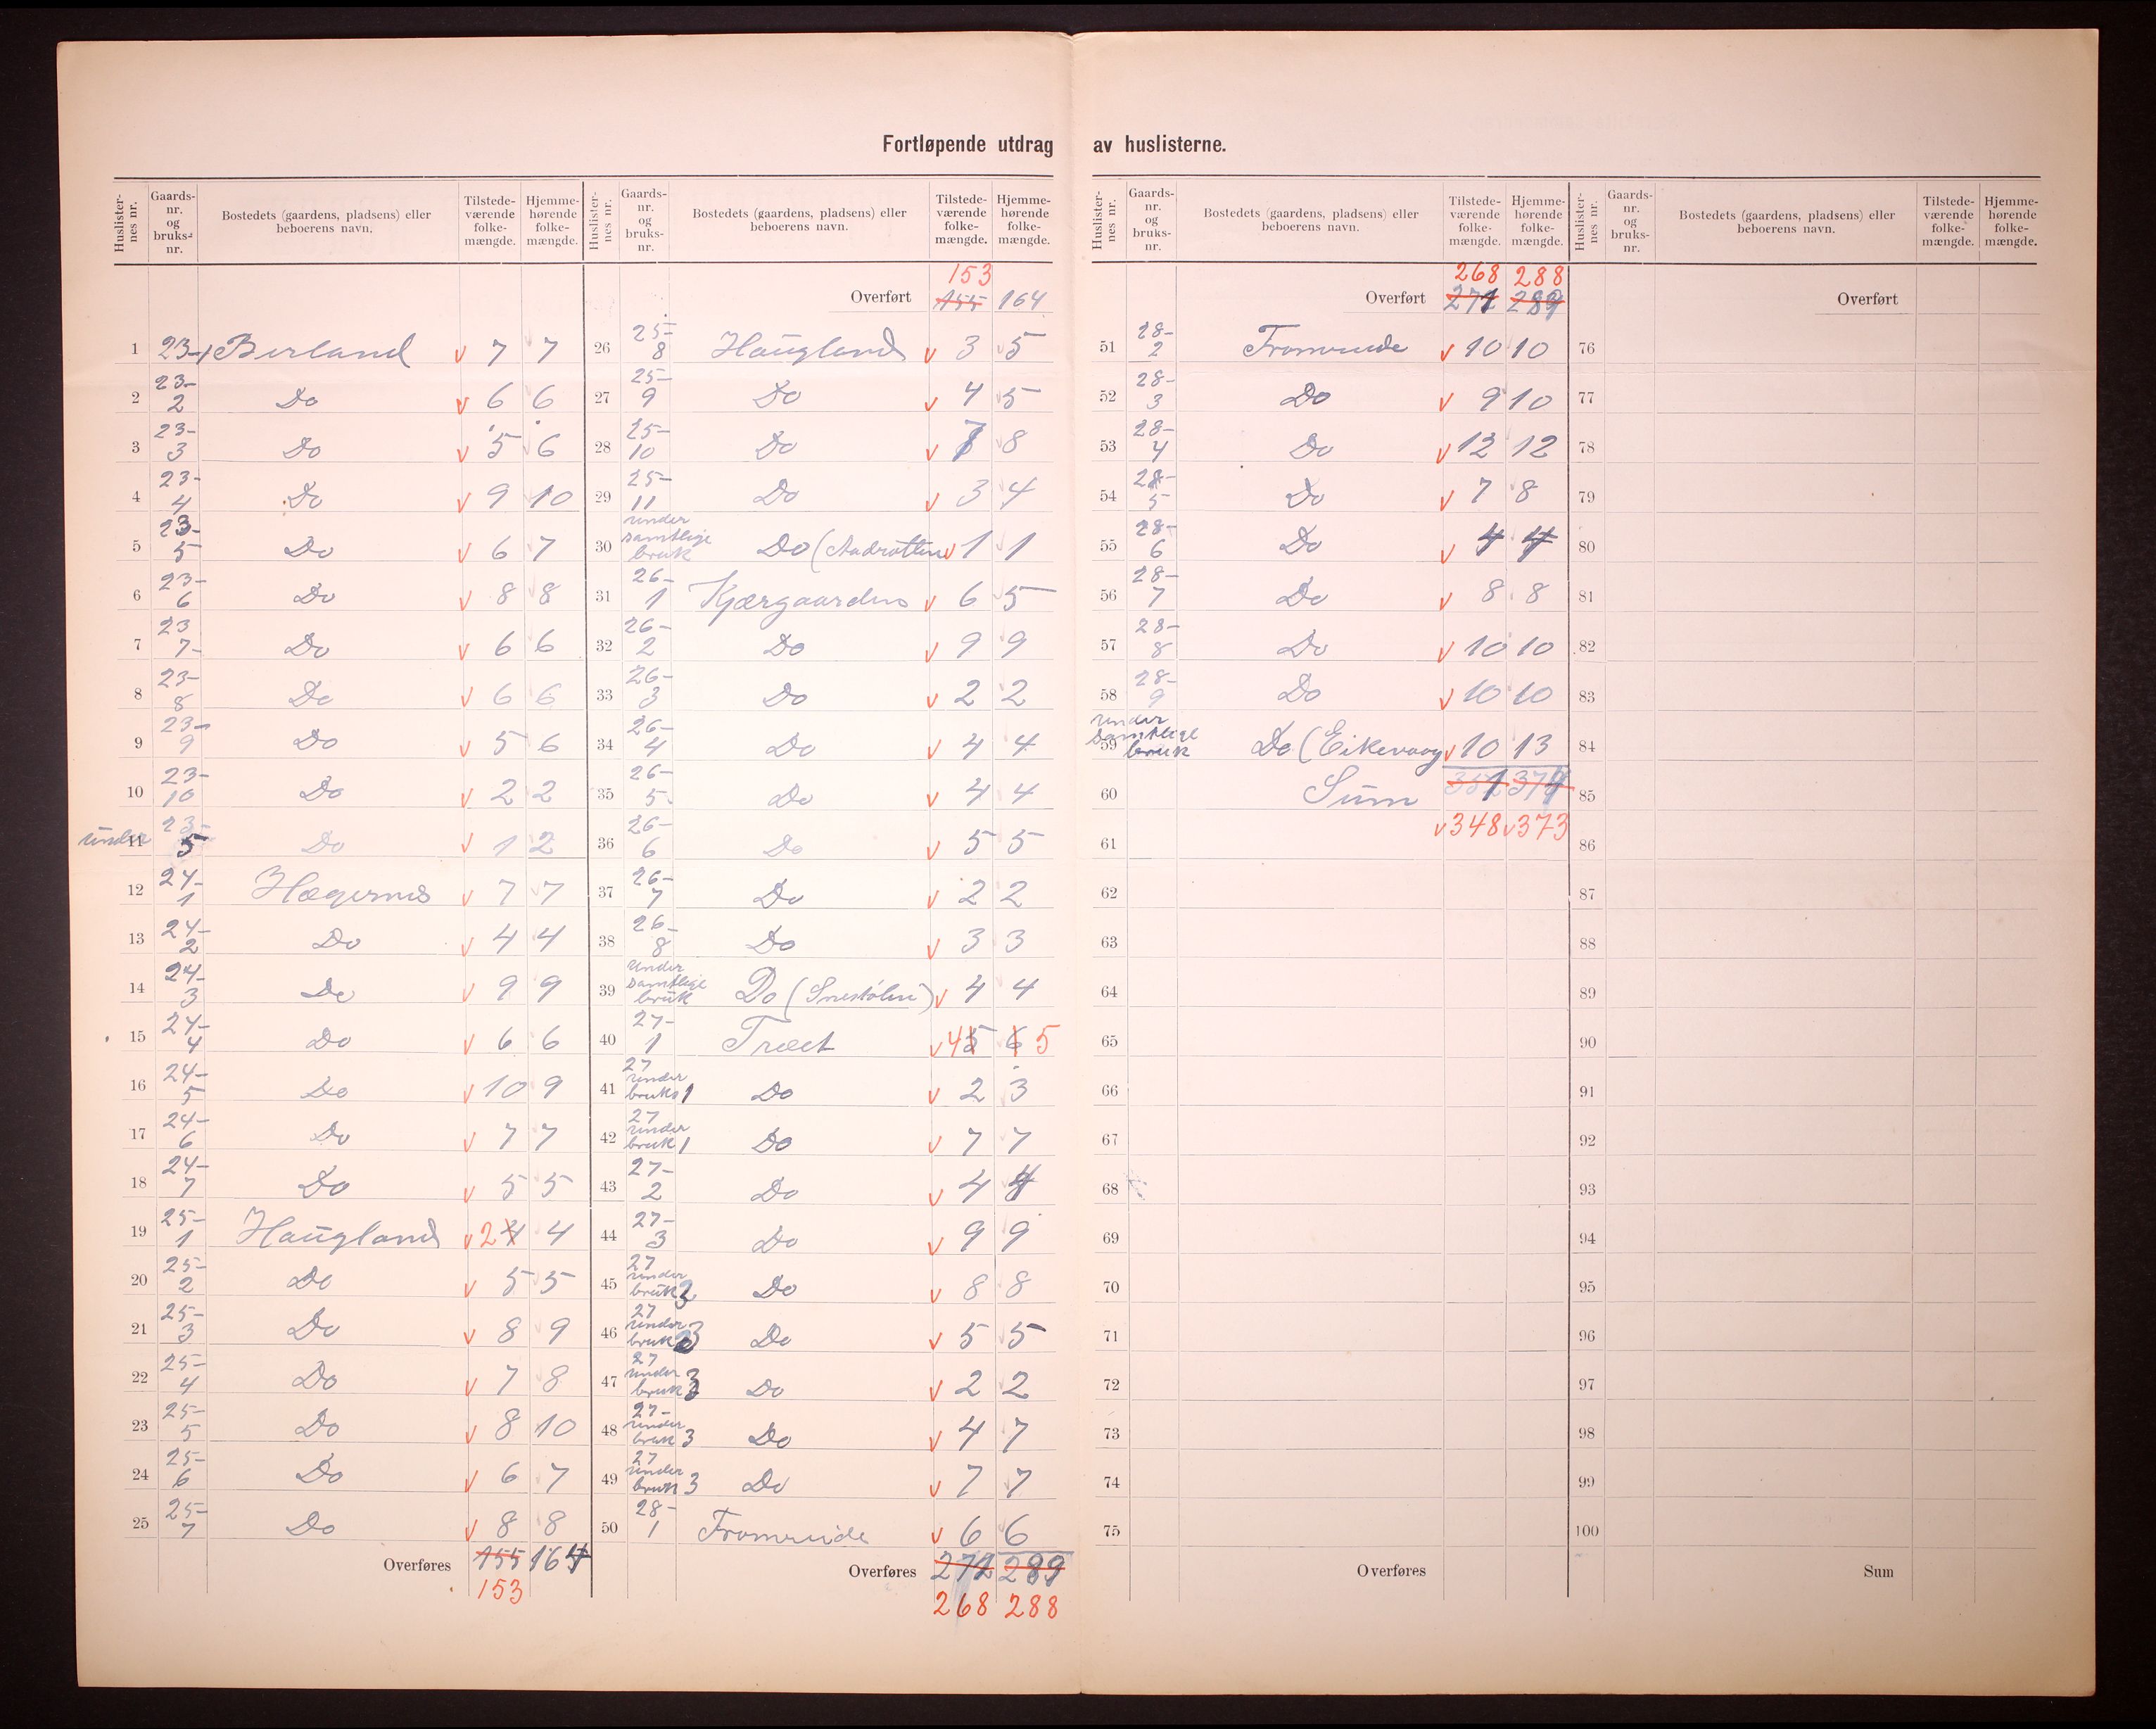 Fortløpende utdrag av huslisterne.
Huslisternes nr. Gaards-nr. og bruks-nr. Bostedets (gaardens, pladsens) eller beboerens navn. Tilstede-værende folke-mængde. Hjemme-hørende folke-mængde.
1 23-1 Birland v 7 7
2 23-2 Do v 6 6
3 23-3 Do v 5 6
4 23-4 Do v 9 10
5 23-5 Do v 6 7
6 23-6 Do v 8 8
7 23 7- Do v 6 6
8 23-8 Do v 6 6
9 23-9 Do v 5 6
10 23-10 Do v 2 2
11 under 23-5 Do v 1 2
12 24-1 Hægernes v 7 7
13 24-2 Do v 4 4
14 24-3 Do v 9 9
15 24-4 Do v 6 6
16 24-5 Do v 10 9
17 24-6 Do v 7 7
18 24-7 Do v 5 5
19 25-1 Haugland v 2 4 4
20 25-2 Do v 5 5
21 25-3 Do v 8 9
22 25-4 Do v 7 8
23 25-5 Do v 8 10
24 25-6 Do v 6 7
25 25-7 Do v 8 8
Overføres 155 164
153
Huslisternes nr. Gaards-nr. og bruks-nr. Bostedets (gaardens, pladsens) eller beboerens navn. Tilstede-værende folke-mængde. Hjemme-hørende folke-mængde.
153
Overført 155 164
26 25-8 Haugland v 3 5
27 25-9 Do v 4 5
28 25-10 Do v 7 8
29 25-11 Do v 3 4
30 under samtlige bruk Do v 1 1
31 26-1 Kjærgaarden v 6 5
32 26-2 Do v 9 9
33 26-3 Do v 2 2
34 26-4 Do v 4 4
35 26-5 Do v 4 4
36 26-6 Do v 5 5
37 26-7 Do v 2 2
38 26-8 Do v 3 3
39 under samtlige bruk Do (Snestølen) v 4 4
40 27-1 Træet v 4 5 6 5
41 27 under bruk 1 Do v 2 3
42 27 under bruk 1 Do v 7 7
43 27-2 Do v 4 4
44 27-3 Do v 9 9
45 27 under bruk 3 Do v 8 8
46 27 under bruk 3 Do v 5 5
47 27 under bruk 3 Do v 2 2
48 27- under bruk 3 Do v 4 7
49 27 under bruk 3 Do v 7 7
50 28-1 Fromreide v 6 6
Overføres 272 289
268 288
Huslisternes nr. Gaards-nr. og bruks-nr. Bostedets (gaardens, pladsens) eller beboerens navn. Tilstede-værende folke-mængde. Hjemme-hørende folke-mængde.
268 288
Overført 271 289
51 28-2 Fromreide v 10 10
52 28-3 Do v 9 10
53 28-4 Do v 12 12
54 28-5 Do v 7 8
55 28-6 Do v 4 4
56 28-7 Do v 8 8
57 28-8 Do v 10 10
58 28-9 Do v 10 10
59 under samtlige bruk Do (Eikevaag v 10 13
60 Sum 351 374
61 v 348 v 373
62
63
64
65
66
67
68
69
70
71
72
73
74
75
Overføres
Huslisternes nr. Gaards-nr. og bruks-nr. Bostedets (gaardens, pladsens) eller beboerens navn. Tilstede-værende folke-mængde. Hjemme-hørende folke-mængde.
Overført
76
77
78
79
80
81
82
83
84
85
86
87
88
89
90
91
92
93
94
95
96
97
98
99
100
Sum